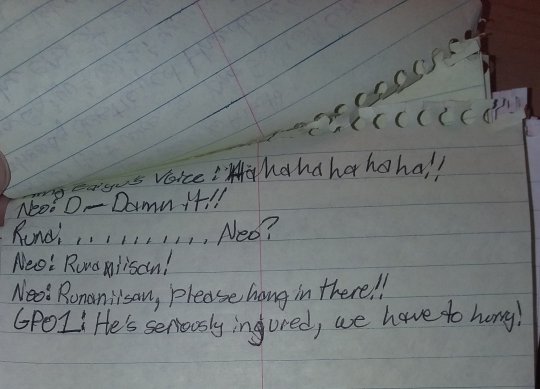 Voice: Hahahahahaha!!
Neo: D- Damn it!!
Runa: .......... Neo?
Neo: Runaniisan!
Neo: Runaniisan, Please hang in there!!
GP01: He's seriously ingured, we have to hurry!